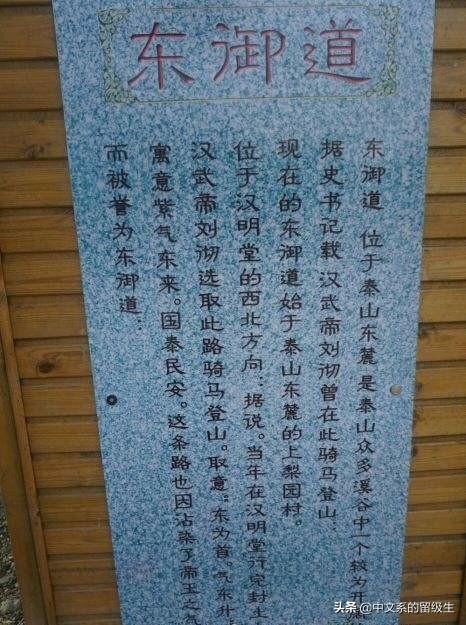 东御道
东御道 位于泰山东麓 是泰山众多溪谷中一个较为开
据史书记载 汉武帝刘彻曾在此骑马登山、
现在的东御道始于泰山东麓的上梨园村。
位于汉明堂的西北方向：据说。当年在汉明堂行完封土
汉武帝刘彻选取此路骑马登山。取意：“东为首。气东升
寓意紫气东来。国泰民安。这条路也因沾染了帝王之气
而被誉为东御道…
头条 @中文系的留级生